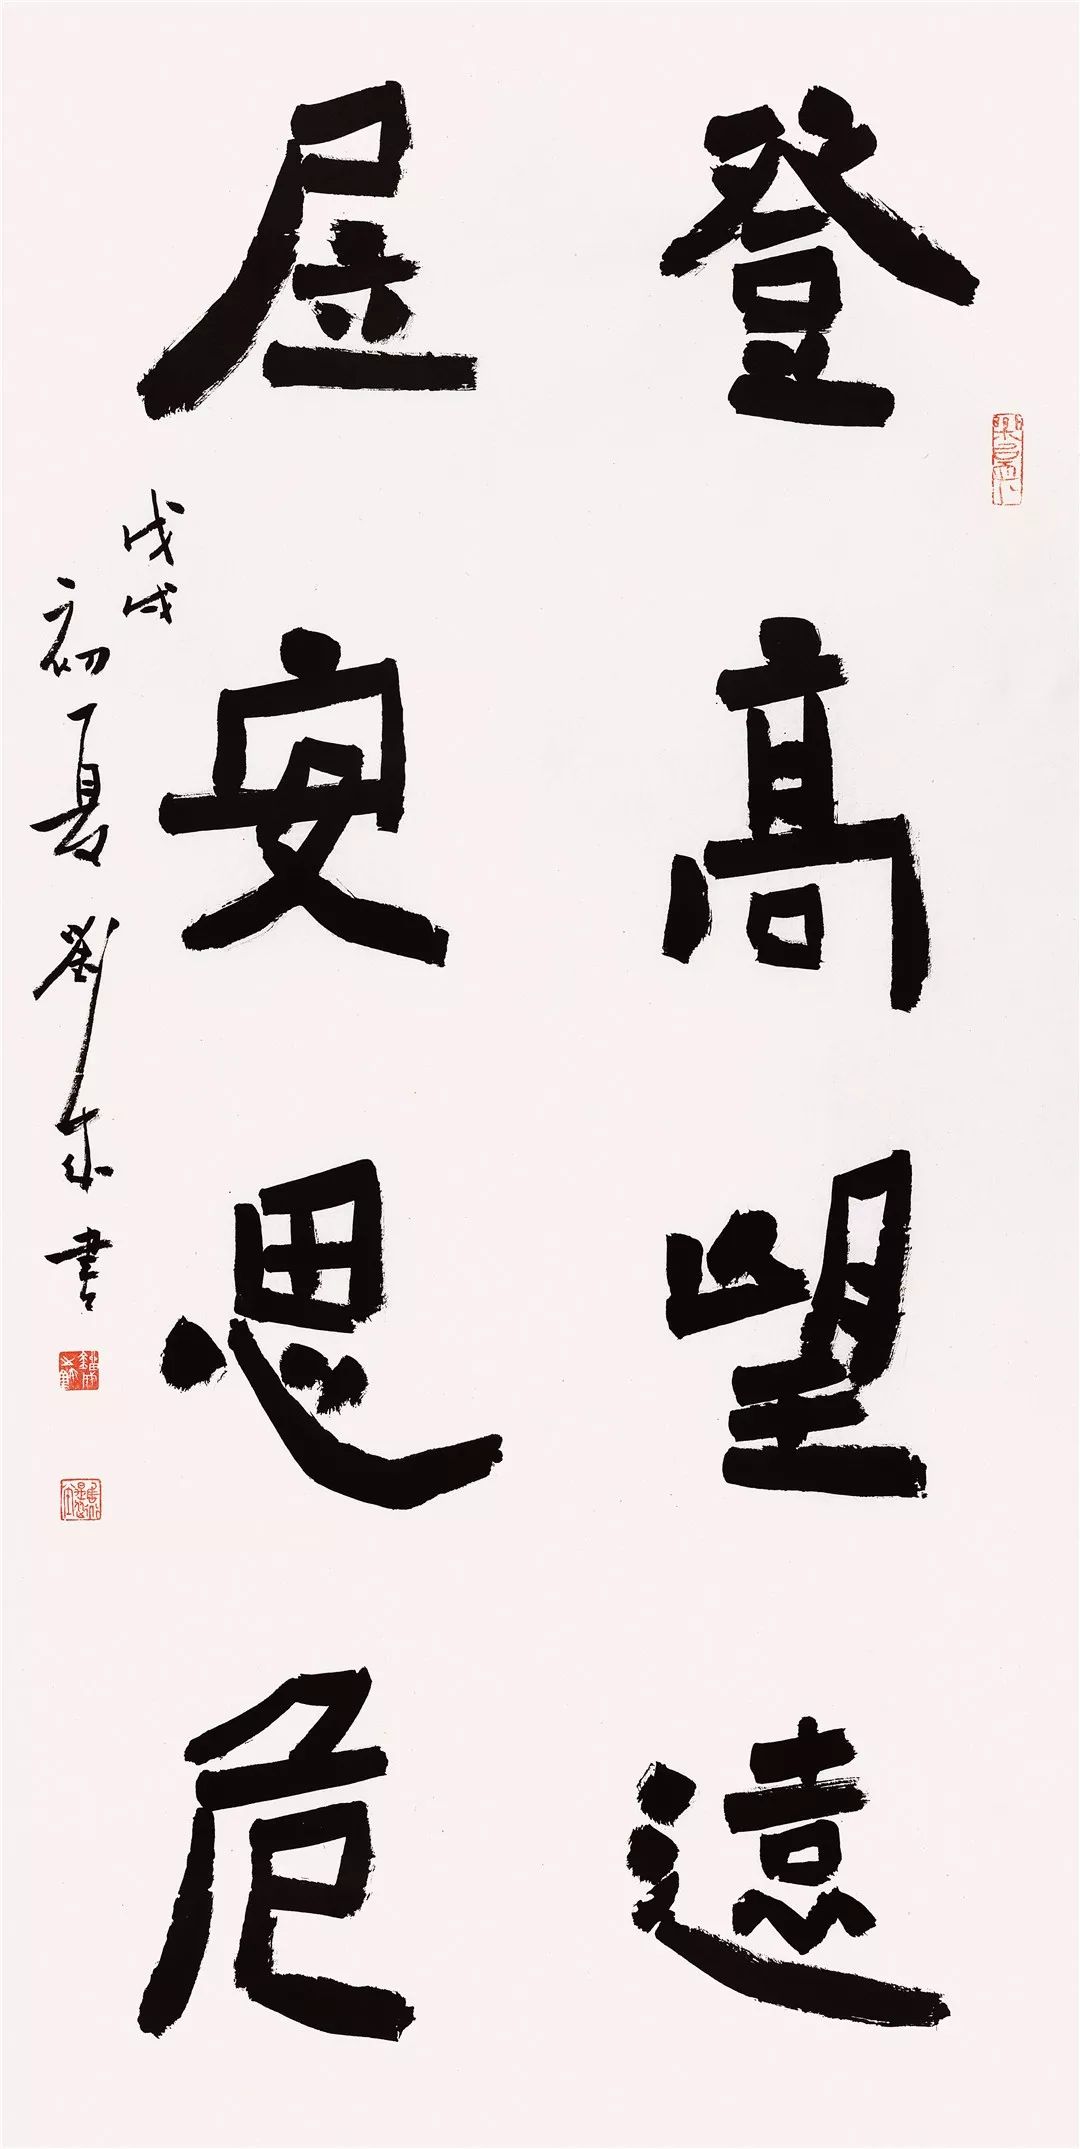 登高望遠
居安思危
戊戌
初夏劉書